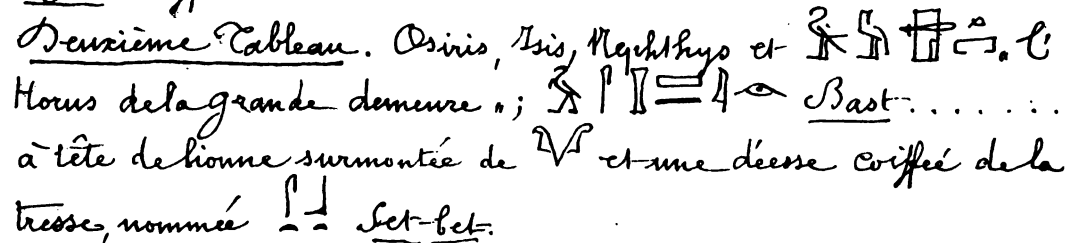 Deuxième Tableau. Osiris, Isis, Nephthys et . L'
Horus de la grande demeure "; Bast .......
à tête de lionne surmontée de et une déesse coiffée de la
tresse, nommée Set-bet.